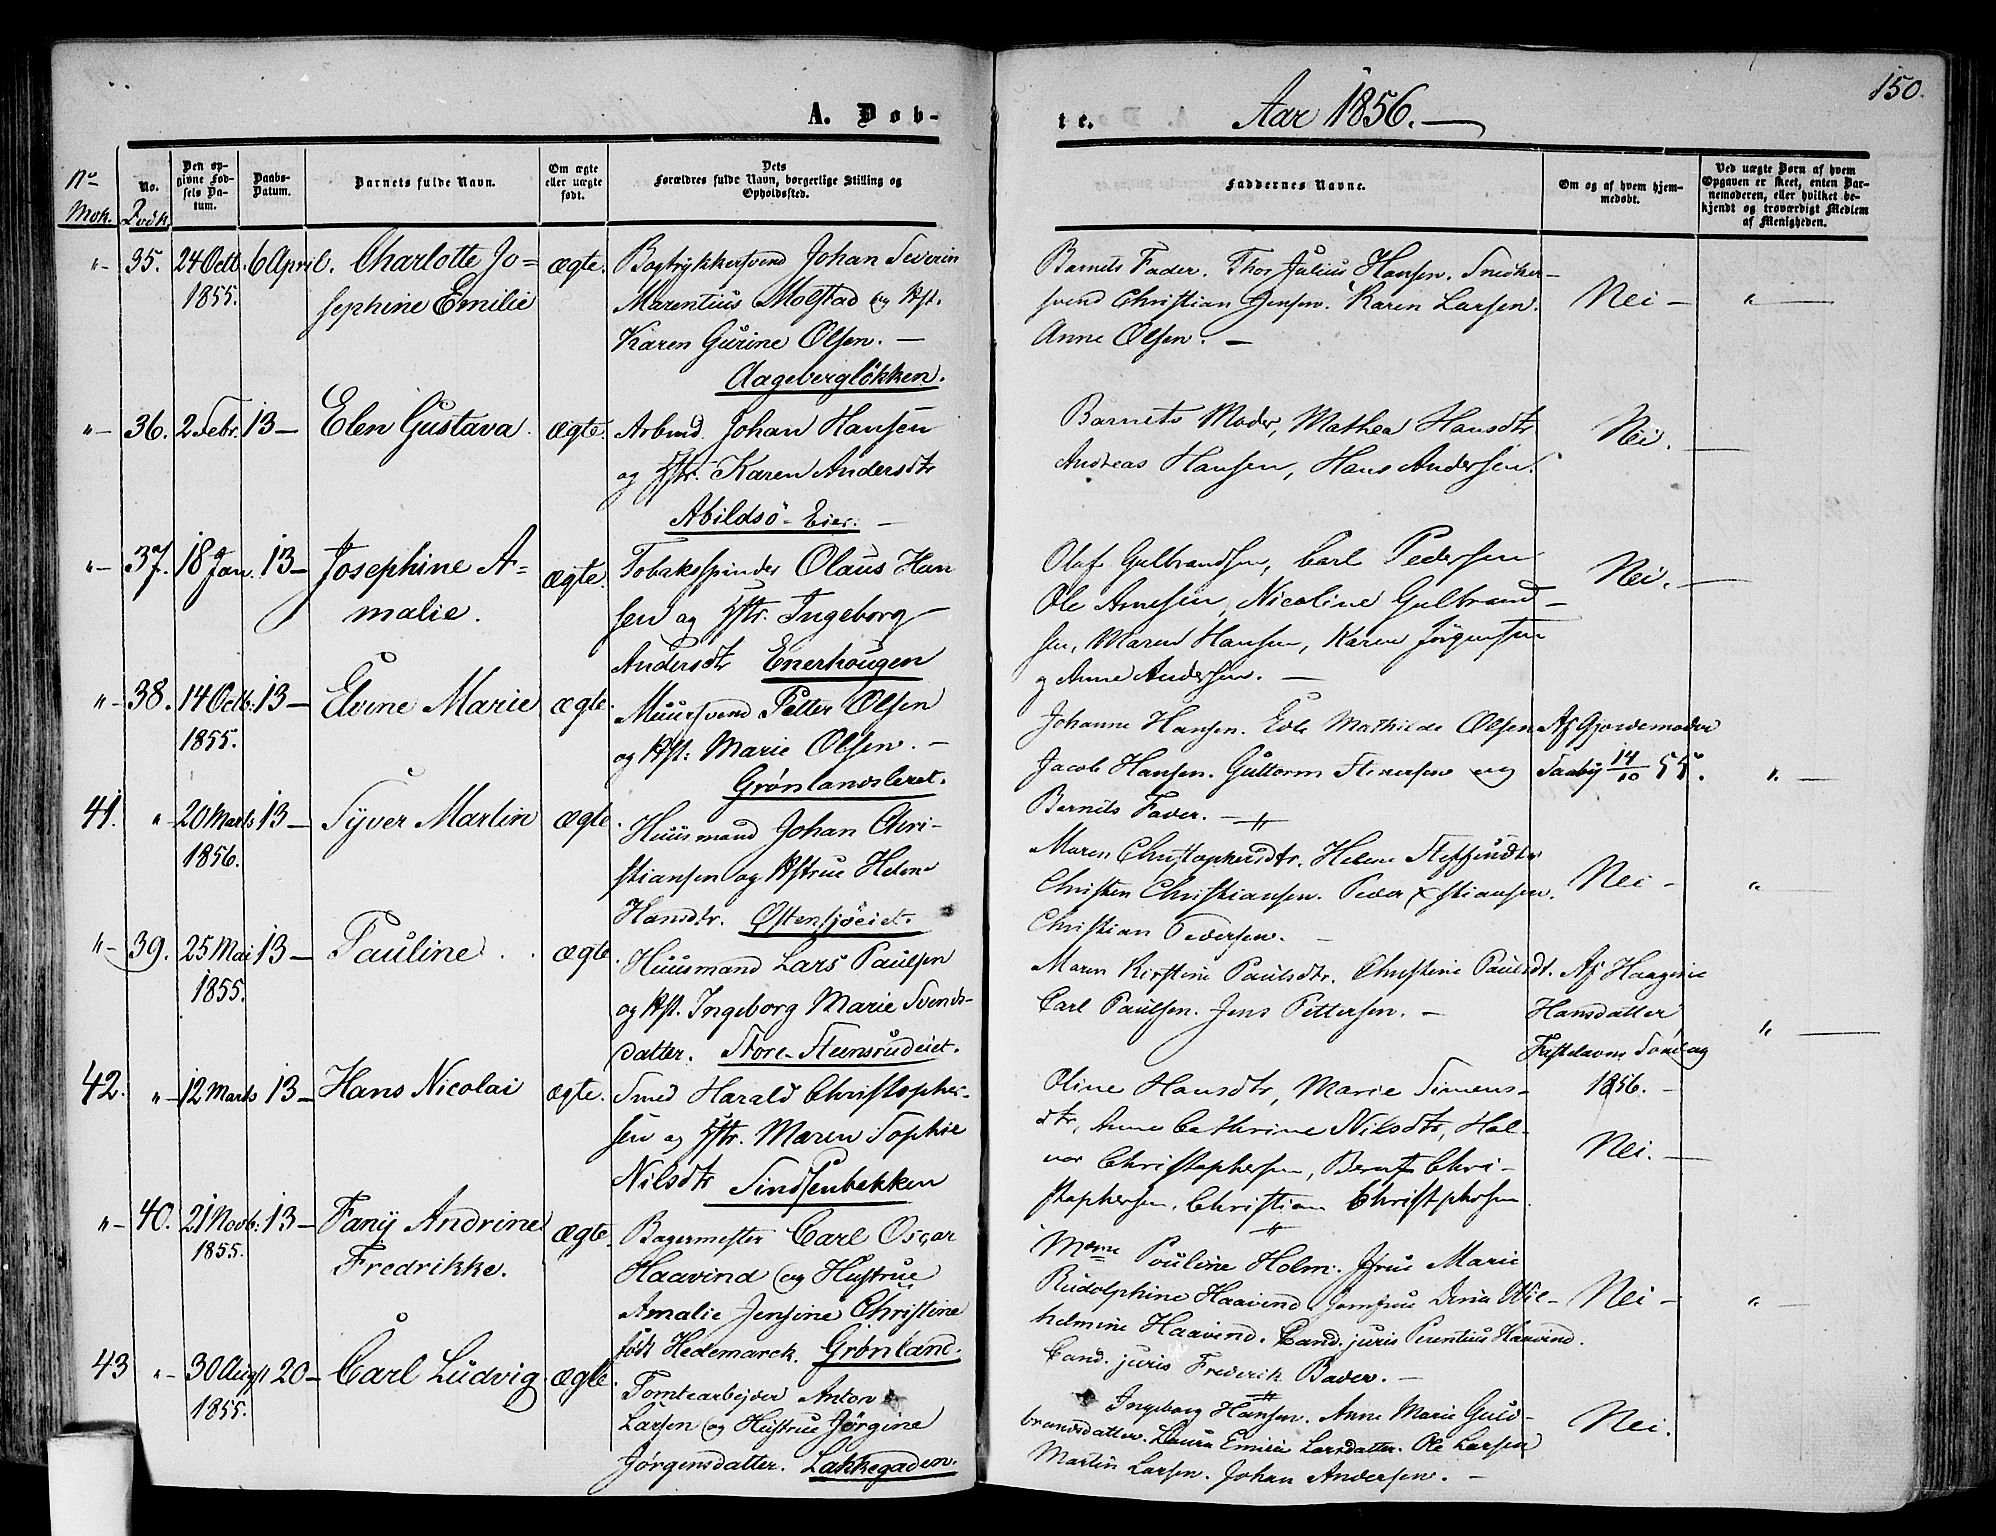 150.
A. Døb-
te.
Aar 1856.
No
Mək.
No.
Qvðk
Den op-
givne Fød-
sels Da-
tum.
Daabs-
Datum.
Barnets fulde Navn.
Om ægte
eller uægte
født.
Dets
Forældres fulde Navn, borgerlige Stilling og
Opholdssted.
Faddernes Navne.
Om og af hvem hjem-
medøbt.
Ved uægte Børn af hvem
Opgaven er skeet, enten Bar-
nemoderen, eller hvilket be-
kjendt og troværdigt Medlem
af Menigheden.
" 35. 24 Octb. 6 April. Charlotte Jo- ægte. Bogtrykkersvend Johan Severin
1855. sephine Emilie Marentius Molstad og Hst.
Karen Gurine Olsen. —
Aagebergløkken.
Barnets Fader. Thor Julius Hansen. Snedker-
svend Christian Jensen. Karen Larsen. Nei — "
Anne Olsen. —
"— 36. 2 Febr. 13— Elen Gustava. ægte. Arbmd. Johan Hansen
og Hstr. Karen Andersdtr
Abildsö-Eier. —
Barnets Moder, Mathea Hansdtr
Andreas Hansen, Hans Andersen. Nei. —
"— 37. 18 Jan. 13— Josephine A- ægte. Tobaksspinder Olaus Han
malie. sen og Hstr. Ingeborg
Andersdtr Enerhougen
Olaf Gulbrandsen, Carl Pedersen
Ole Arnesen, Nicoline Gulbrand— Nei. —
sen, Maren Hansen, Karen Jörgensen
og Anne Andersen. —
"— 38. 14 Octb. 13— Elvine Marie ægte. Muursvend Petter Olsen
1855. og Hst. Marie Olsen. —
Grønlandsleret.
Johanne Hansen. Edle Mathilde Olsen Af Gjordemoder
Jacob Hansen. Guttorm Stenersen og Taaby 14/10 55. " —
Barnets Fader. —
41. " 20 Marts 13— Syver Martin ægte. Huusmand Johan Chri-
1856. stiansen og Hstrue Helene
Hansdtr. Østensjøeiet.
Maren Christophersdtr. Helene Steffensdtr
Christen Christiansen. Peder Xstiansen. Nei — "
Christian Pedersen. —
"— 39. 25 Mai 13— Pauline. ægte. Huusmand Lars Paulsen
1855. og Hst. Ingeborg Marie Svends-
datter. Store-Steensrudeiet.
Maren Kirstine Paulsdtr. Christine Paulsdt. Af Haagine
Carl Paulsen. Jens Pettersen. — Hansdatter
Fastelavns Søndag "
1856. —
42. "— 12 Marts 13— Hans Nicolai ægte. Smed Harald Christopher-
sen og Hstr. Maren Sophie
Nilsdtr Sindsenbakken
Oline Hansdtr, Marie Simens-
dtr, Anne Cathrine Nilsdtr, Hal-
vor Christophersen, Bernt Chri- Nei. —
stophersen, Christian Christophersen
"— 40. 21 Novb. 13— Fanij Andrine ægte. Bagermester Carl Oscar
1855. Fredrikke. Haavind og Hustrue
Amalie Jensine Christine
født Hedemarck. Grönland.
Mdme Pouline Holm. Jfrue Marie
Rudolphine Haavind. Jomfrue Dina Wil-
helmine Haavind. Cand. juris Perentius Haavind. Nei — "
Cand. juris Frederik Bader. —
43 "— 30 Augst 20— Carl Ludvig ægte. Tomtearbejder Anton
1855. Larsen og Hustrue Jørgine
Jørgensdatter. Lakkegaden.
Ingeborg Hansen. Anne Marie Guld-
brandsdatter. Laura Emilie Larsdatter. Ole Larsen Nei.
Martin Larsen. Johan Andersen. —